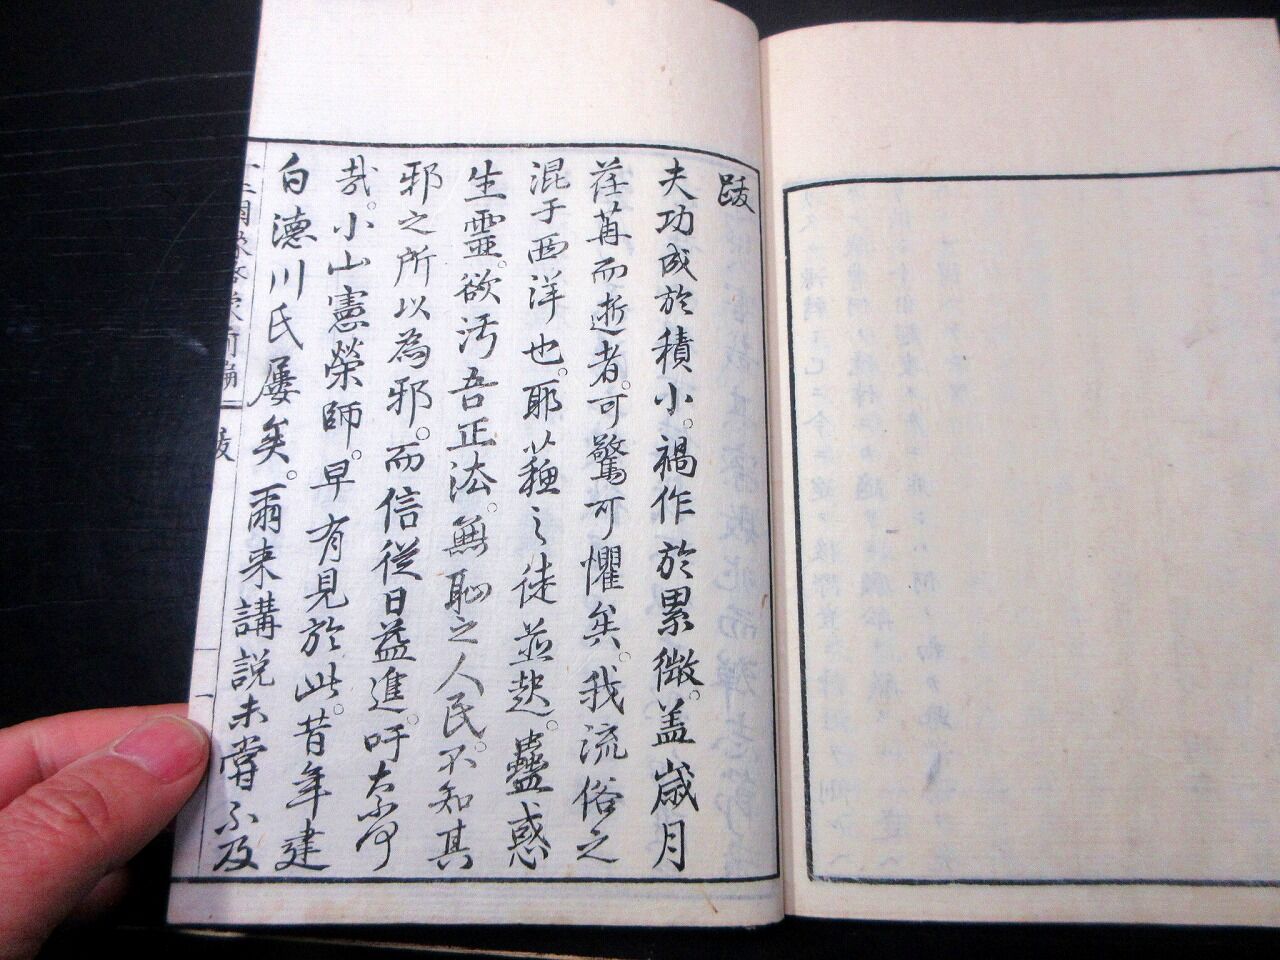 跋
夫功成於積小。禍作於累微。蓋歳月
荏苒而逝者。可驚可懼矣。我流俗之
混于西洋也。耶蘇之徒並起。蠱惑
生靈。欲汚吾正法。無恥之人民。不知其
邪之所以為邪。而信從日益進。吁奈何
哉。小山憲榮師。早有見於此。昔年建
白德川氏屢矣。爾来講說未嘗不及